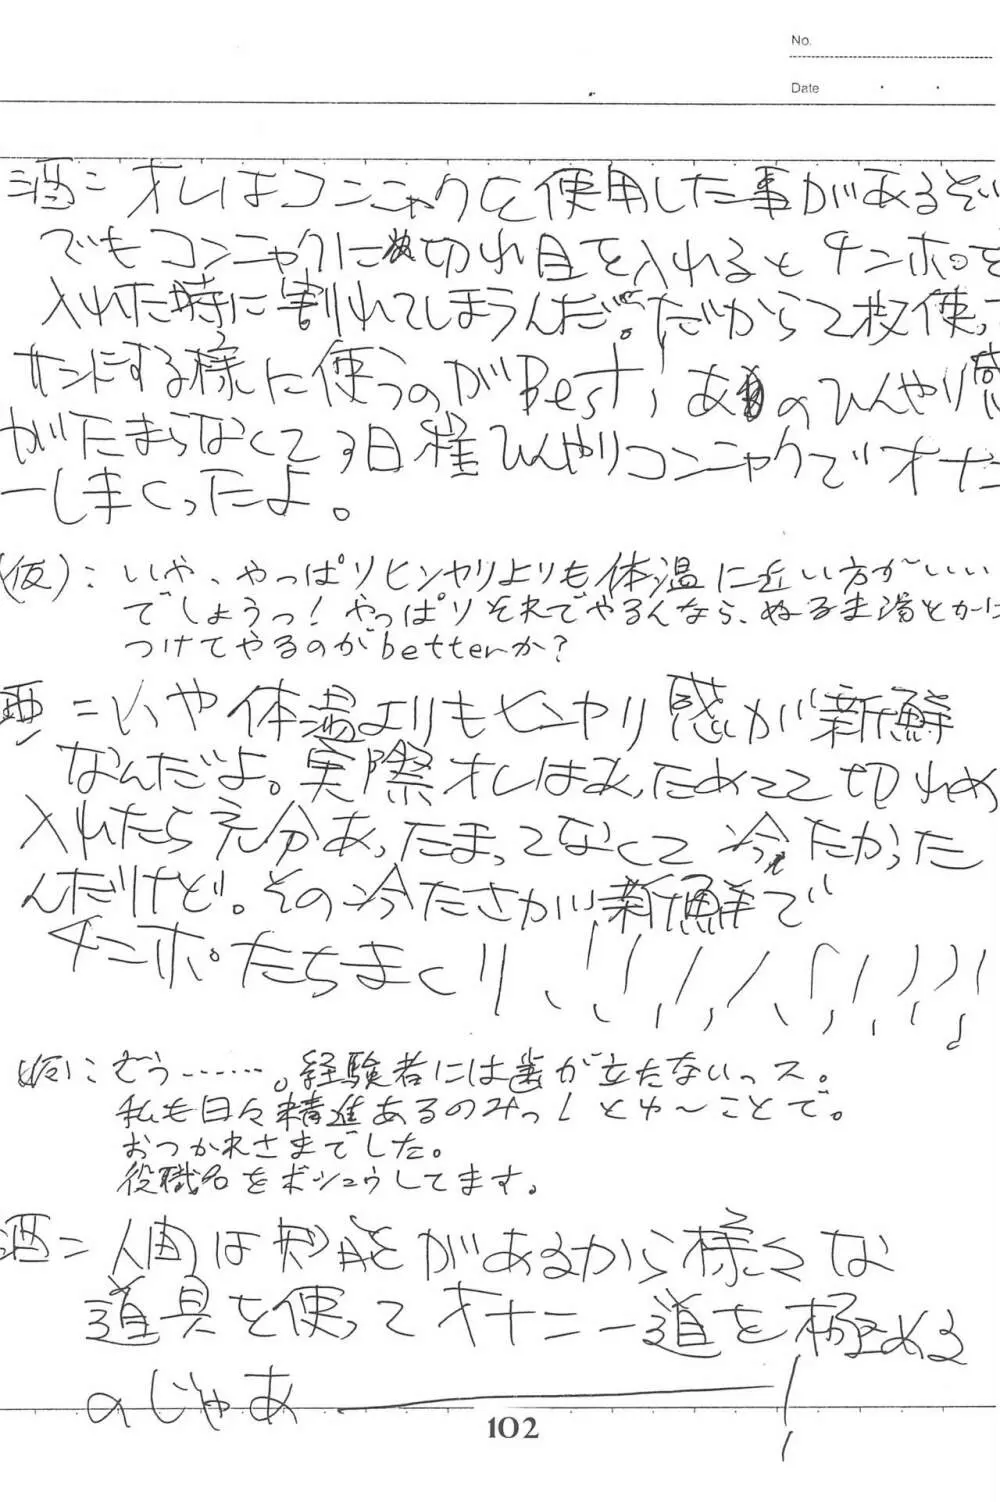 No.
Date
酒= オレはコンニャクを使用した事があるぞ
でもコンニャクに切れ目を入れるとチンポを
入れた時に割れてしまうんだ。だから2枚使っ
サンドする様に使うのがBest! あのひんやり感
がたまらなくて3日程ひんやりコンニャクでオナニ
ーしまくったよ。
(仮): いや、やっぱりヒンヤリよりも体温に近い方がいい
でしょうっ!やっぱりそれでやるんなら、ぬるま湯とかに
つけてやるのがbetterか?
酒=いや体温よりもヒンヤリ感が新鮮
なんだよ。実際オレはあっためてて切れめ
入れたら充分あったまってなくて冷たかった
んだけど。その冷たさが新鮮で
チンポたちまくり!!!!!!!!!!
(仮): むう……。経験者には歯が立たないっス。
私も日々精進あるのみっ!とゆ〜ことで。
おつかれさまでした。
役職名をボシュウしてます。
酒= 人間は知能があるから様々な
道具を使ってオナニー道を極める
のじゃあ――!
102